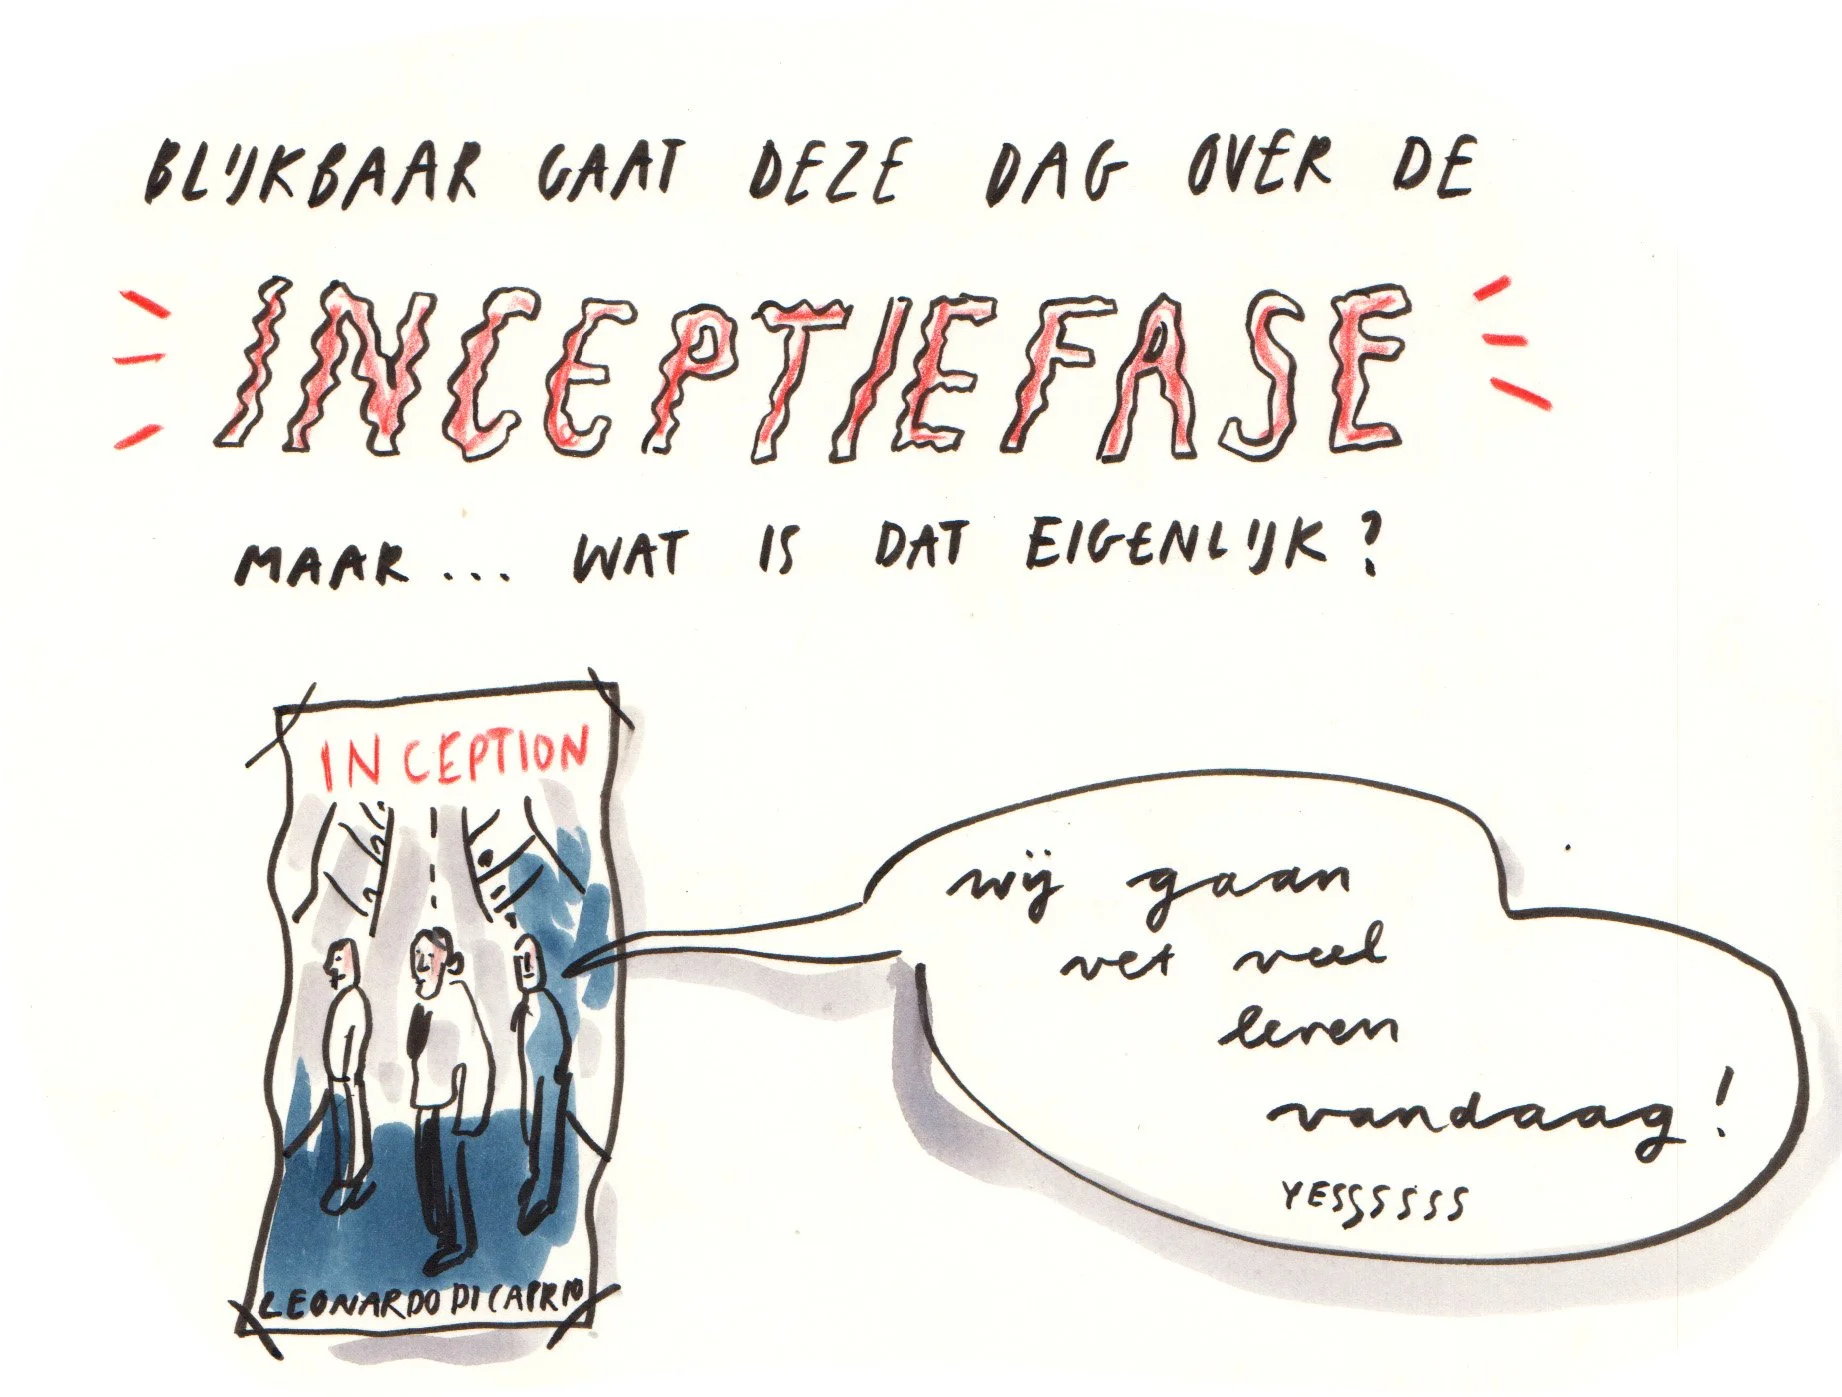 BLIJKBAAR GAAT DEZE DAG OVER DE
INCEPTIEFASE
MAAR... WAT IS DAT EIGENLIJK?
INCEPTION
LEONARDO DICAPRIO
wij gaan
vet veel
leren
vandaag!
YESSSSSS